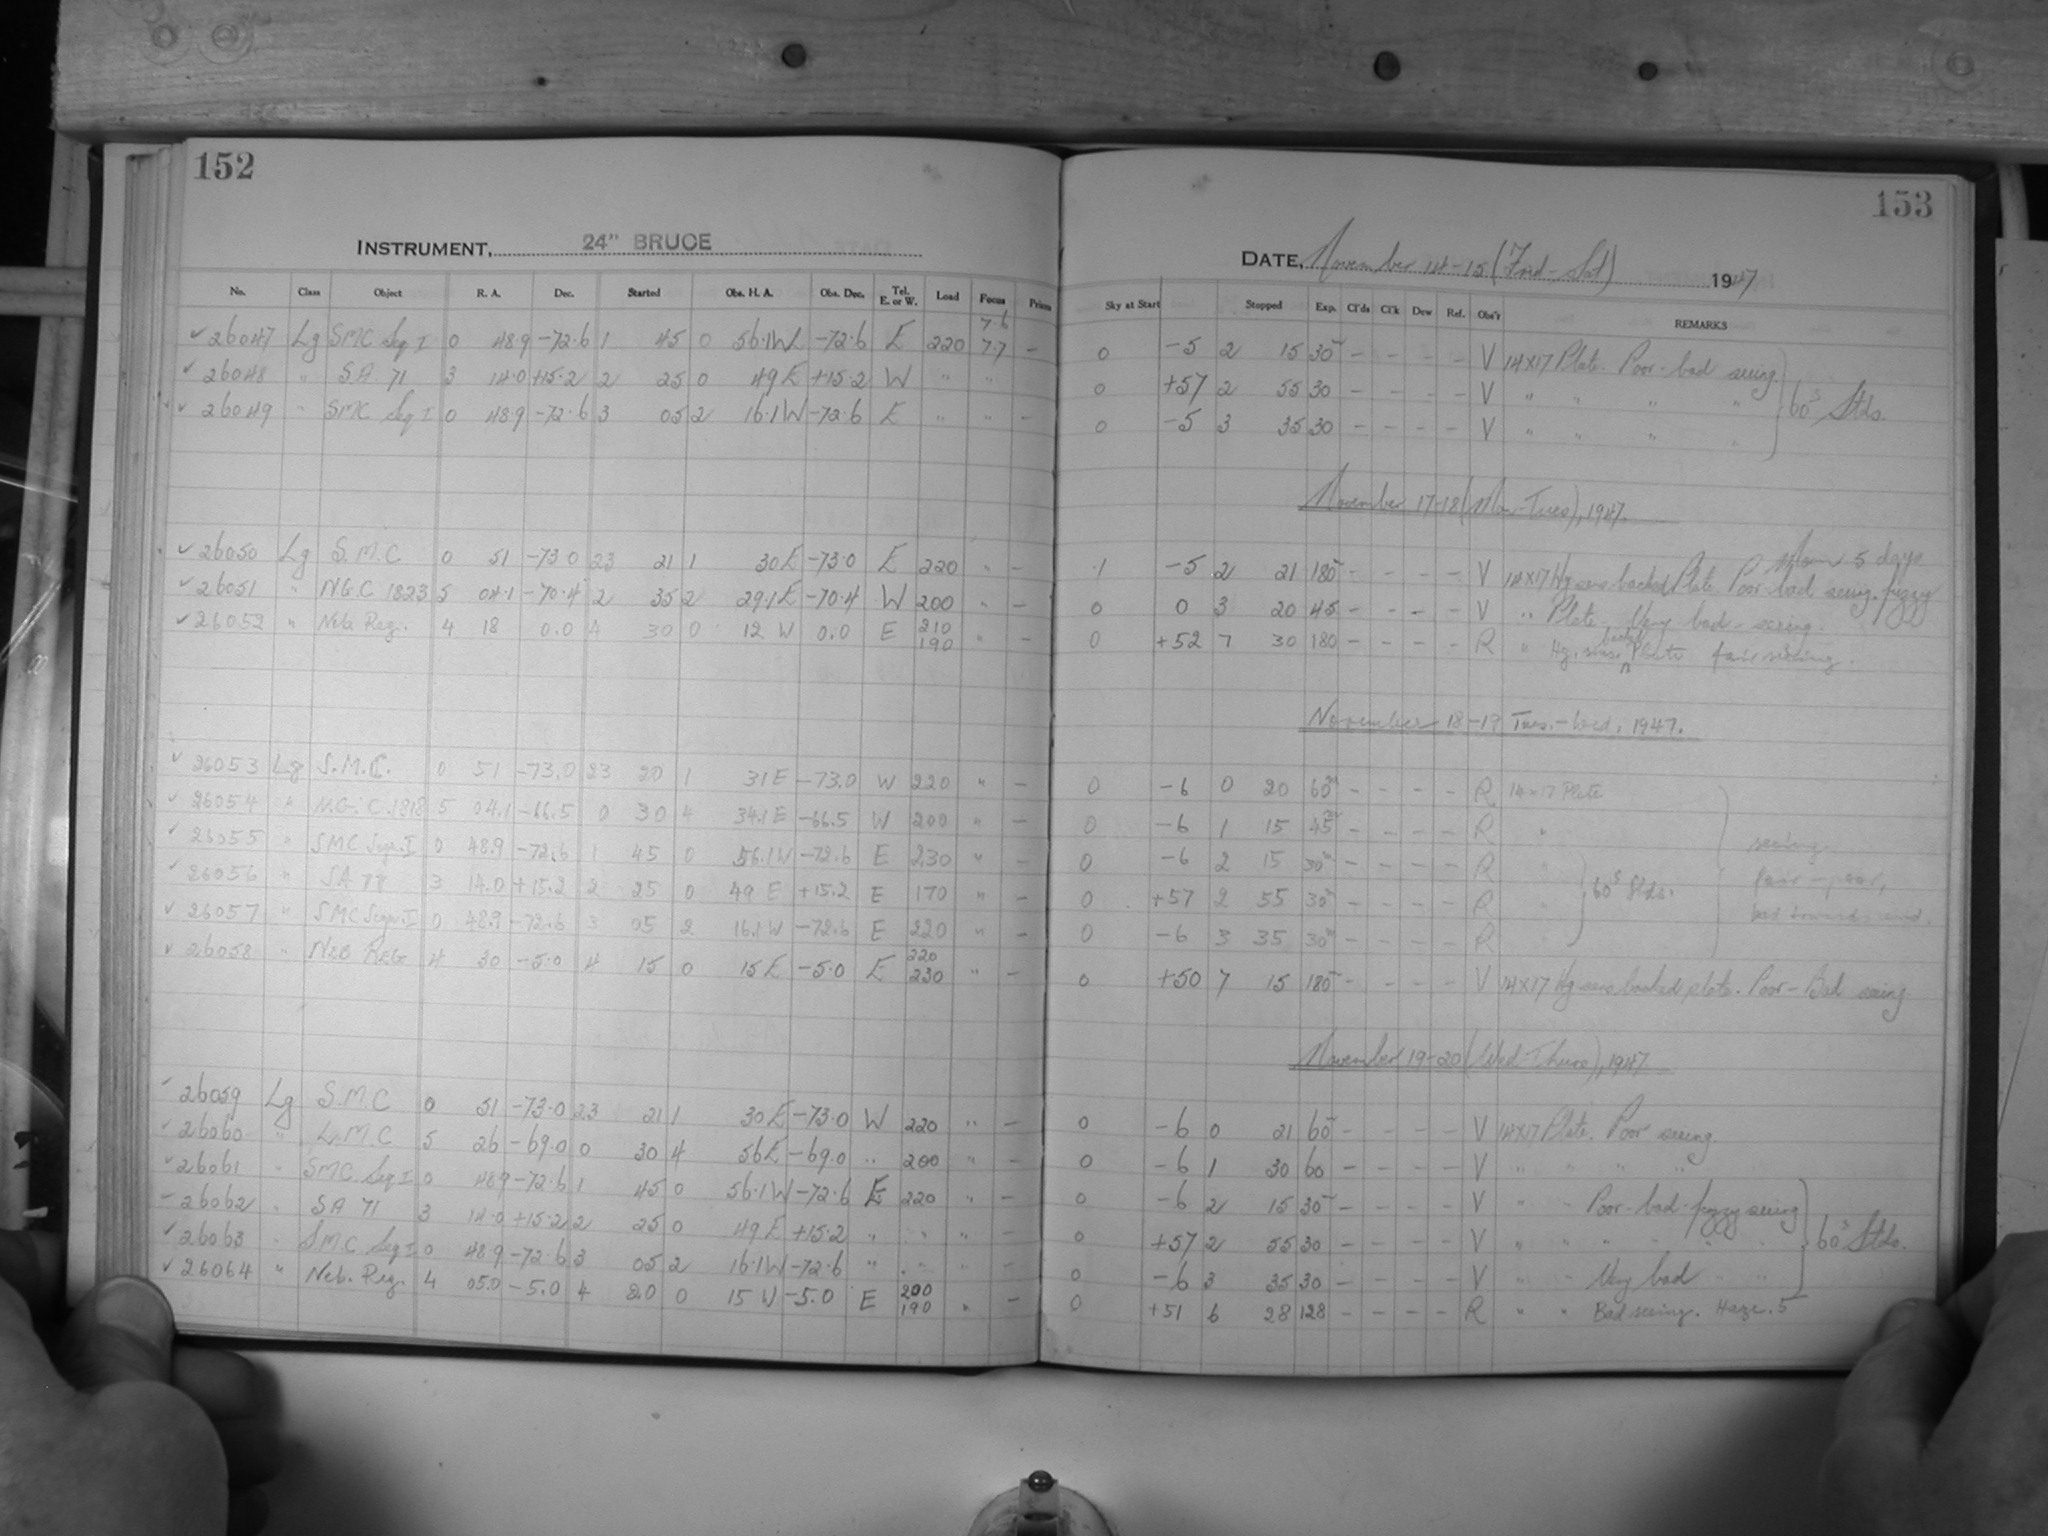 152
INSTRUMENT, 24" BRUCE
No. Class Object R. A. Dec. Started Obs. H. A. Obs. Dec. Tel. E. or W. Load Focus Prism
7.6
✓ 26047 Lg SMC Seq I 0 48.9 -72.6 1 45 0 56.1W -72.6 E 220 7.7 -
✓ 26048 " S.A. 71 3 14.0 +15.2 2 25 0 49 E +15.2 W " "
✓ 26049 " SMC Seq I 0 48.9 -72.6 3 05 2 16.1W -72.6 E " " -
✓ 26050 Lg S.M.C 0 51 -73.0 23 21 1 30E -73.0 E 220 " -
✓ 26051 " N.G.C 1823 5 04.1 -70.4 2 35 2 29.1E -70.4 W 200 " -
✓ 26052 " Neb. Reg. 4 18 0.0 4 30 0 12 W 0.0 E 210 190 " -
✓ 26053 Lg S.M.C. 0 51 -73.0 23 20 1 31E -73.0 W 220 " -
✓ 26054 " N.G.C. 1818 5 04.1 -66.5 0 30 4 34.1E -66.5 W 200 " -
✓ 26055 " SMC Sequ. I 0 48.9 -72.6 1 45 0 56.1W -72.6 E 230 " -
✓ 26056 " SA 3 14.0 +15.2 2 25 0 49 E +15.2 E 170 " -
✓ 26057 " SMC Sequ. I 0 48.9 -72.6 3 05 2 16.1W -72.6 E 220 " -
✓ 26058 " NEB REG 4 30 -5.0 4 15 0 15E -5.0 E 220 230 " -
✓ 26059 Lg S.M.C 0 51 -73.0 23 21 1 30E -73.0 W 220 " -
✓ 26060 " L.M.C 5 26 -69.0 0 30 4 56E -69.0 " 200 " -
✓ 26061 " SMC Seq I 0 48.9 -72.6 1 45 0 56.1W -72.6 E 220 " -
- 26062 " SA 71 3 14.0 +15.2 2 25 0 49E +15.2 " " " -
✓ 26063 " SMC Seq I 0 48.9 -72.6 3 05 2 16.1W -72.6 " " " -
✓ 26064 " Neb. Reg. 4 05.0 -5.0 4 20 0 15 W -5.0 E 200 190 " -
153
DATE, November 14-15 1947
Sky at Start Stopped Exp. Cl'ds Cl'k Dew Ref. Obs'r REMARKS
0 -5 2 15 30m - - - - V 14x17 Plate. Poor-bad seeing.
0 +57 2 55 30 - - - - V " " " "
60s Stds.
0 -5 3 35 30 - - - - V " " " "
November 17-18 (Mon-Tues), 1947.
Moon 5 days
.1 -5 2 21 180m - - - - V 14x17 Hg sens backed Plate. Poor-bad seeing. fuzzy
0 0 3 20 45 - - - - V " Plate. Very bad-seeing.
0 +52 7 30 180 - - - - R " Hg. sens. backed Plate fair seeing.
November 18-19 Tues.-Wed. 1947.
0 -6 0 20 60m - - - - R 14x17 Plate
0 -6 1 15 45m - - - - R "
seeing.
0 -6 2 15 30m - - - - R "
60s Stds. fair-poor,
0 +57 2 55 30m - - - - R "
bad towards end.
0 -6 3 35 30m - - - - R "
0 +50 7 15 180m - - - - V 14x17 Hg sens backed plate. Poor-Bad seeing.
November 19-20 (Wed-Thurs), 1947
0 -6 0 21 60m - - - - V 14x17 Plate. Poor seeing.
0 -6 1 30 60 - - - - V " " " "
0 -6 2 15 30m - - - - V " " Poor-bad-fuzzy seeing
0 +57 2 55 30 - - - - V " " " " " "
60s Stds.
0 -6 3 35 30 - - - - V " " Very bad " "
0 +51 6 28 128 - - - - R " " Bad seeing. Haze .5